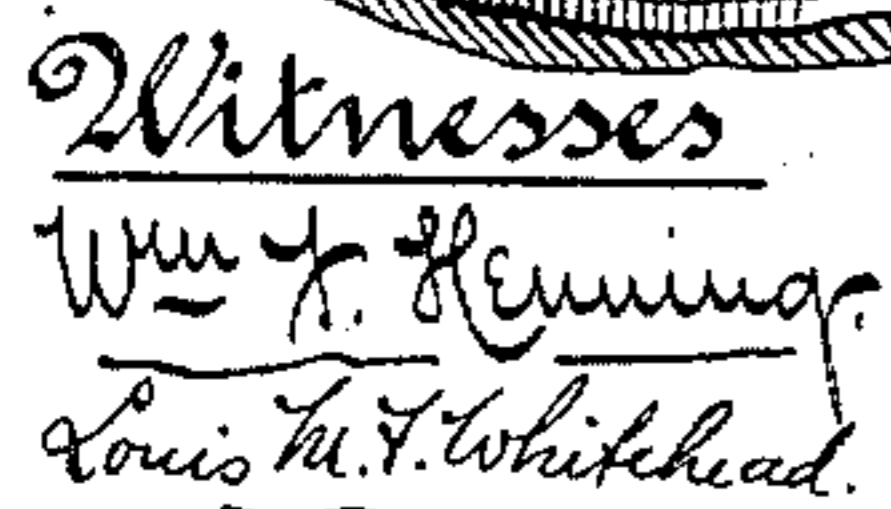 Witnesses
Wm F. Henning.
Louis M. F. Whitehead.